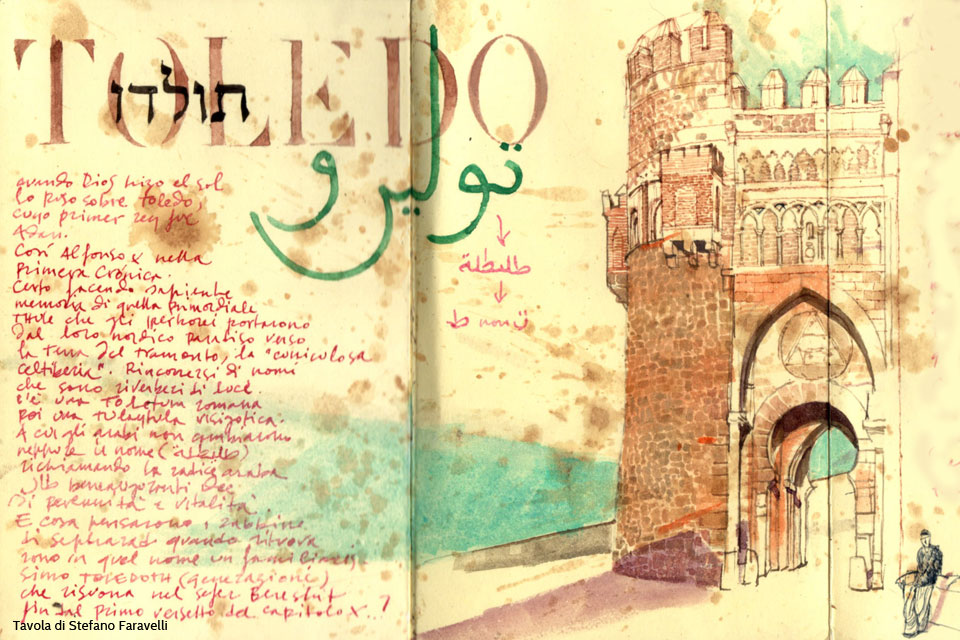 TOLEDO
תולדו
توليدو
quando Dios hizo el sol
lo puso sobre Toledo,
cuyo primer rey fue
Adan.
Così Alfonso X nella
Primera Crónica.
Certo facendo sapiente
memoria di quella primordiale
THULE che gli Iperborei portarono
dal loro nordico paradiso verso
la terra del tramonto, la "cuniculosa
celtiberia". Rincorrersi di nomi
che sono riverberi di luce.
c'è una Toletum romana
poi una Tolaytula visigotica.
A cui gli arabi non cambiarono
neppure il nome
richiamando la radice araba
di perennità e vitalità
E cosa pensarono i rabbini
di Sepharad quando ritrova
rono in quel nome un familiaris
simo TOLEDOTH (generazione)
che risuona nel sefer Bereshit
fin dal primo versetto del capitolo X..?
طليطلة
ط
Tavola di Stefano Faravelli